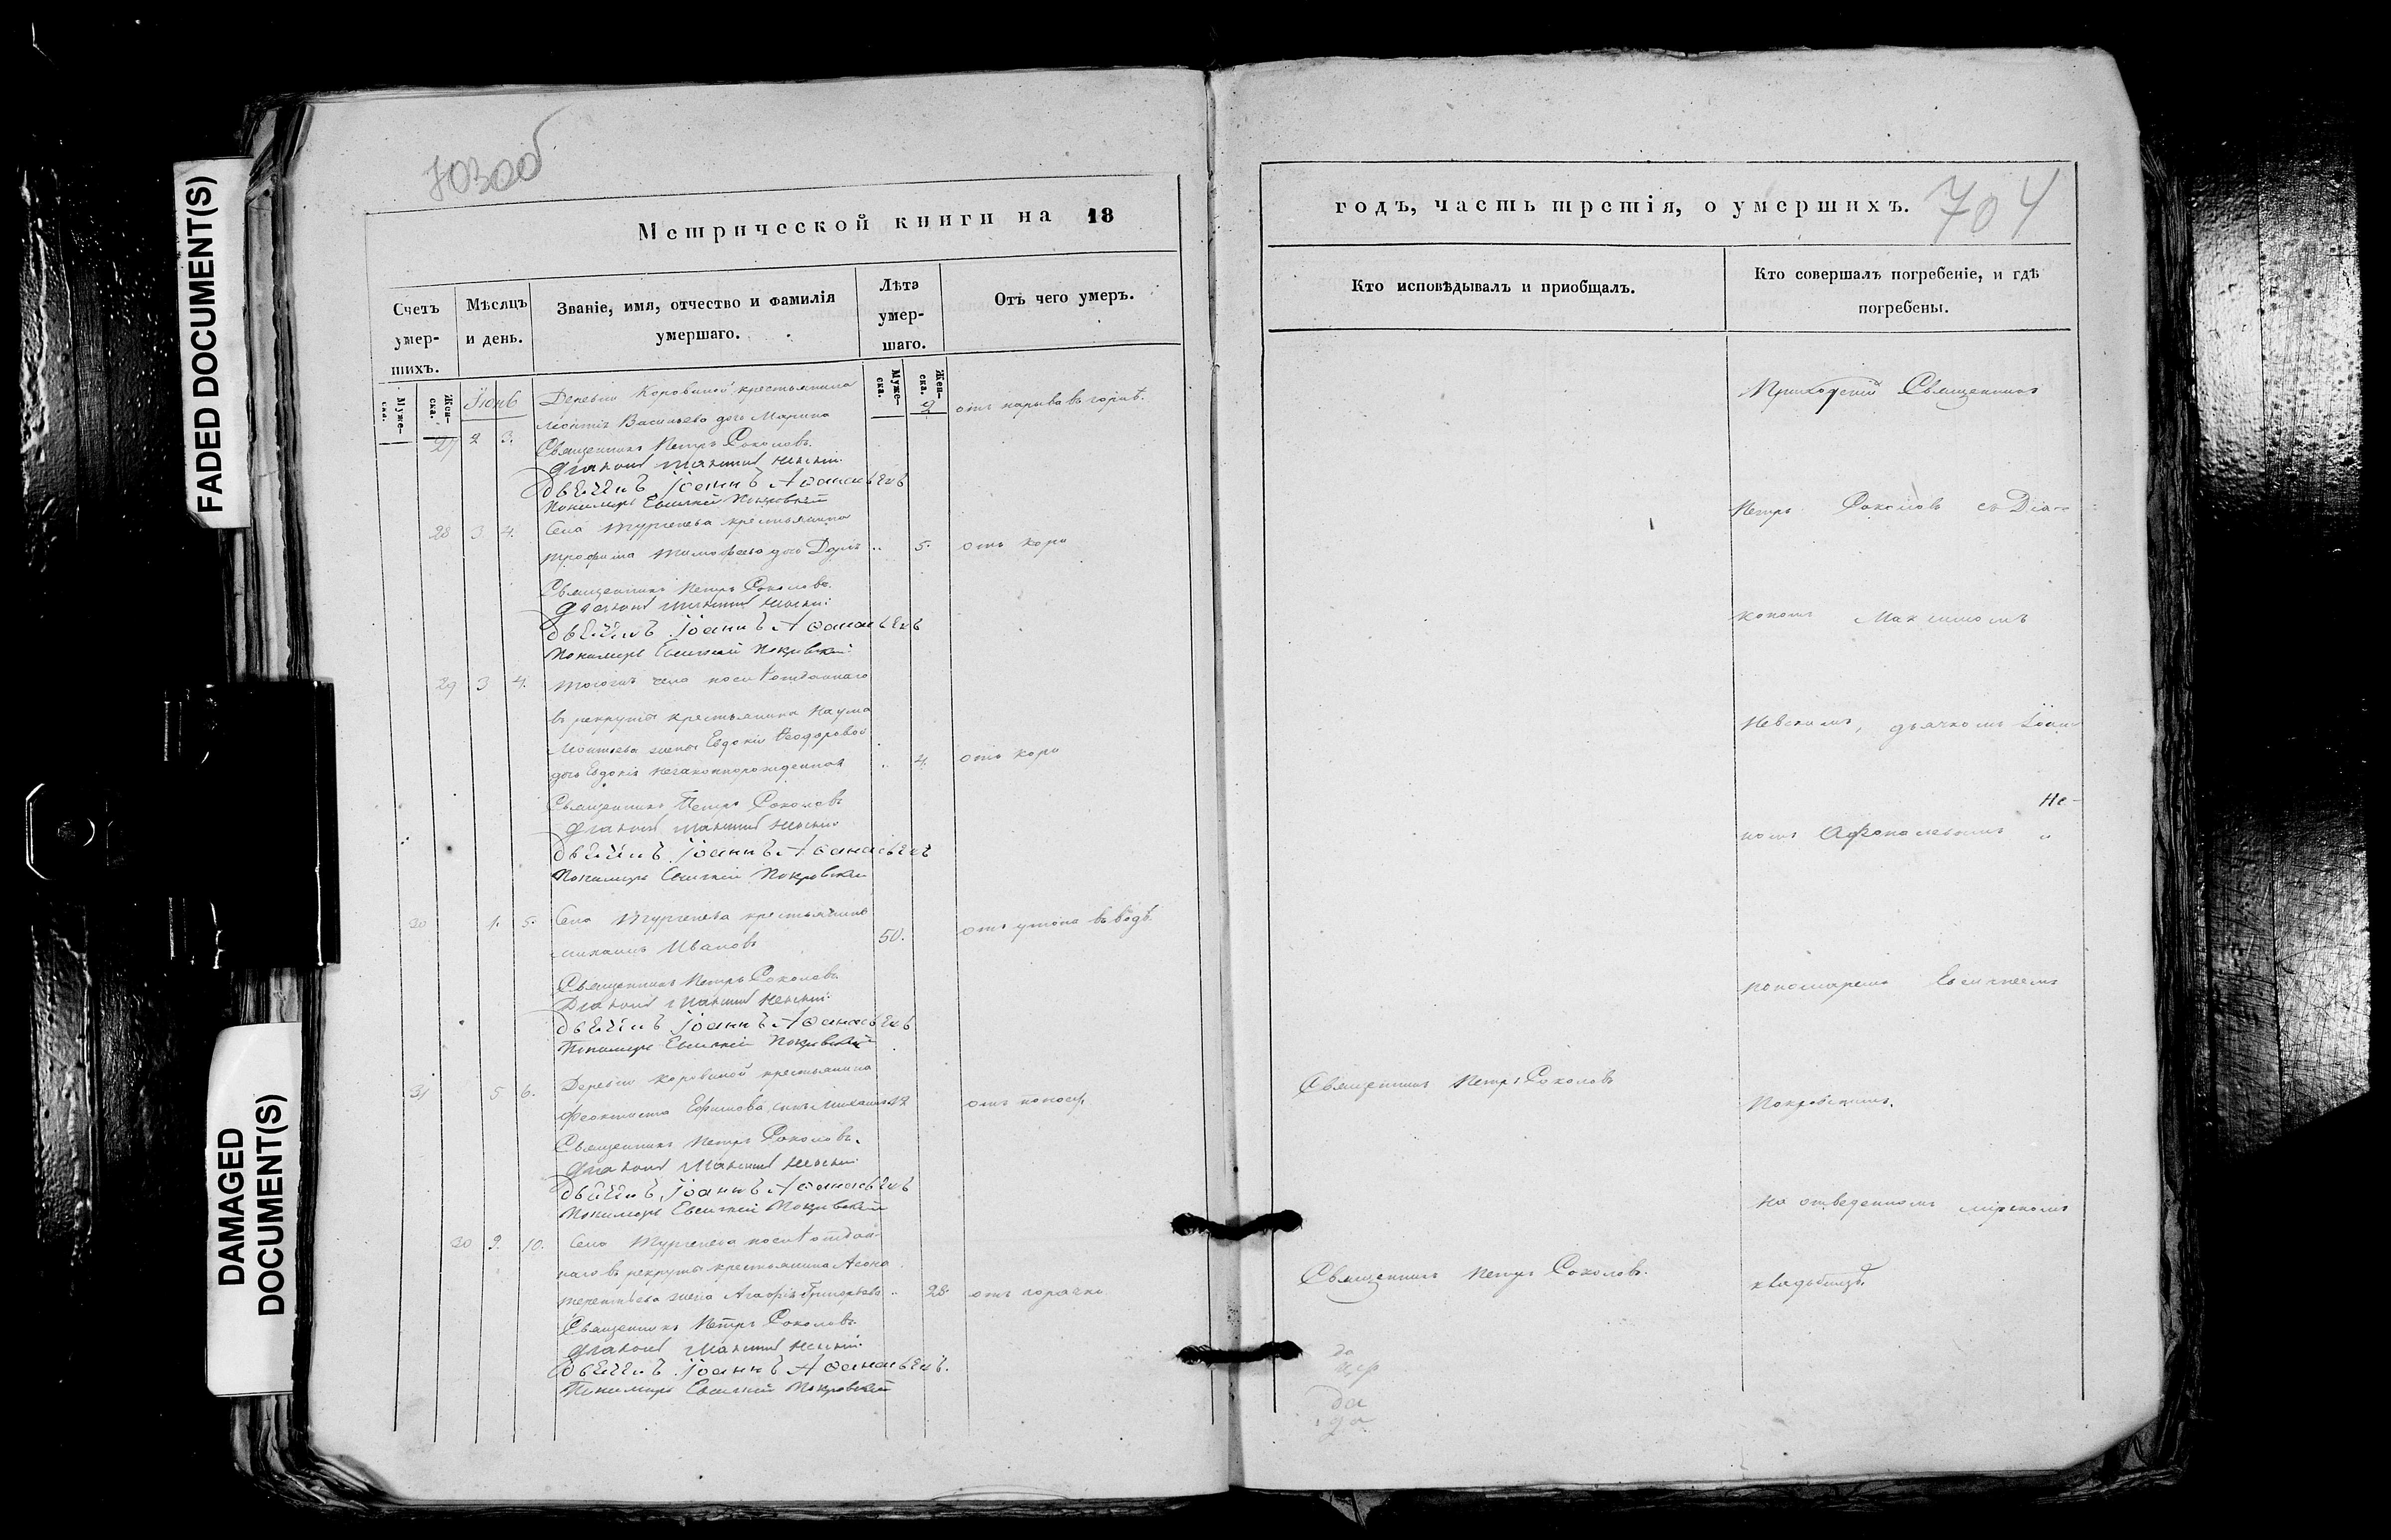 FADED DOCUMENT(S)
DAMAGED
DOCUMENT(S)
703об
Метрической книги на 18
Счетъ
умер-
шихъ.
Мѣсяцъ
и день.
Званіе, имя, отчество и фамилія
умершаго.
Лѣта
умер-
шаго.
Отъ чего умеръ.
Муже-
ска.
Жен-
ска.
Муже-
ска.
Жен-
ска.
Іюнь
Деревни Коровиной крестьянина
Леонтія Васильева дочь Марина
2
отъ нарыва въ горлѣ.
27 2 3.
Священникъ Петръ Соколовъ.
Діаконъ Максимъ Невскій.
Дьячекъ Іоаннъ Аѳанасьевъ
Пономарь Евсигній Покровскій
28 3 4. Села Тургенева крестьянина
Трофима Тимофеева дочь Дарья „ 5. отъ кори
Священникъ Петръ Соколовъ.
Діаконъ Максимъ Невскій.
Дьячекъ Іоаннъ Аѳанасьевъ
Пономарь Евсигній Покровскій.
29 3 4. Тогожъ села послѣ отданнаго
въ рекруты крестьянина Наума
Леонтьева жены Евдокіи Ѳеодоровой
дочь Евдокія незаконнорожденная „ 4. отъ кори
Священникъ Петръ Соколовъ
Діаконъ Максимъ Невскій.
Дьячекъ Іоаннъ Аѳанасьевъ
Пономарь Евсигній Покровскій
30 1. 5. Села Тургенева крестьянинъ
Михаилъ Ивановъ 50. отъ утопа въ водѣ.
Священникъ Петръ Соколовъ.
Діаконъ Максимъ Невскій.
Дьячекъ Іоаннъ Аѳанасьевъ.
Пономарь Евсигній Покровскій
31 5 6. Деревни Коровиной крестьянина
Феоктиста Ефимова сынъ Михаилъ 12 отъ поноса
Священникъ Петръ Соколовъ.
Діаконъ Максимъ Невскій.
Дьячекъ Іоаннъ Аѳанасьевъ
Пономарь Евсигній Покровскій
30 9. 10. Села Тургенева послѣ отдан-
наго въ рекруты крестьянина
Терентьева жена Агафія Григорьева „ 28. отъ горячки
Священникъ Петръ Соколовъ.
Діаконъ Максимъ Невскій.
Дьячекъ Іоаннъ Аѳанасьевъ.
Пономарь Евсигній Покровскій
годъ, часть третія, о умершихъ.
704
Кто исповѣдывалъ и пріобщалъ.
Кто совершалъ погребеніе, и гдѣ
погребены.
Приходскій Священникъ
Петръ Соколовъ съ Діа-
кономъ Максимомъ
Невскимъ, дьячкомъ Іоан-
номъ
пономаремъ Евсигнеемъ
Священникъ Петръ Соколовъ
Покровскимъ.
на отведенномъ мірскомъ
Священникъ Петръ Соколовъ.
кладбищѣ.
да